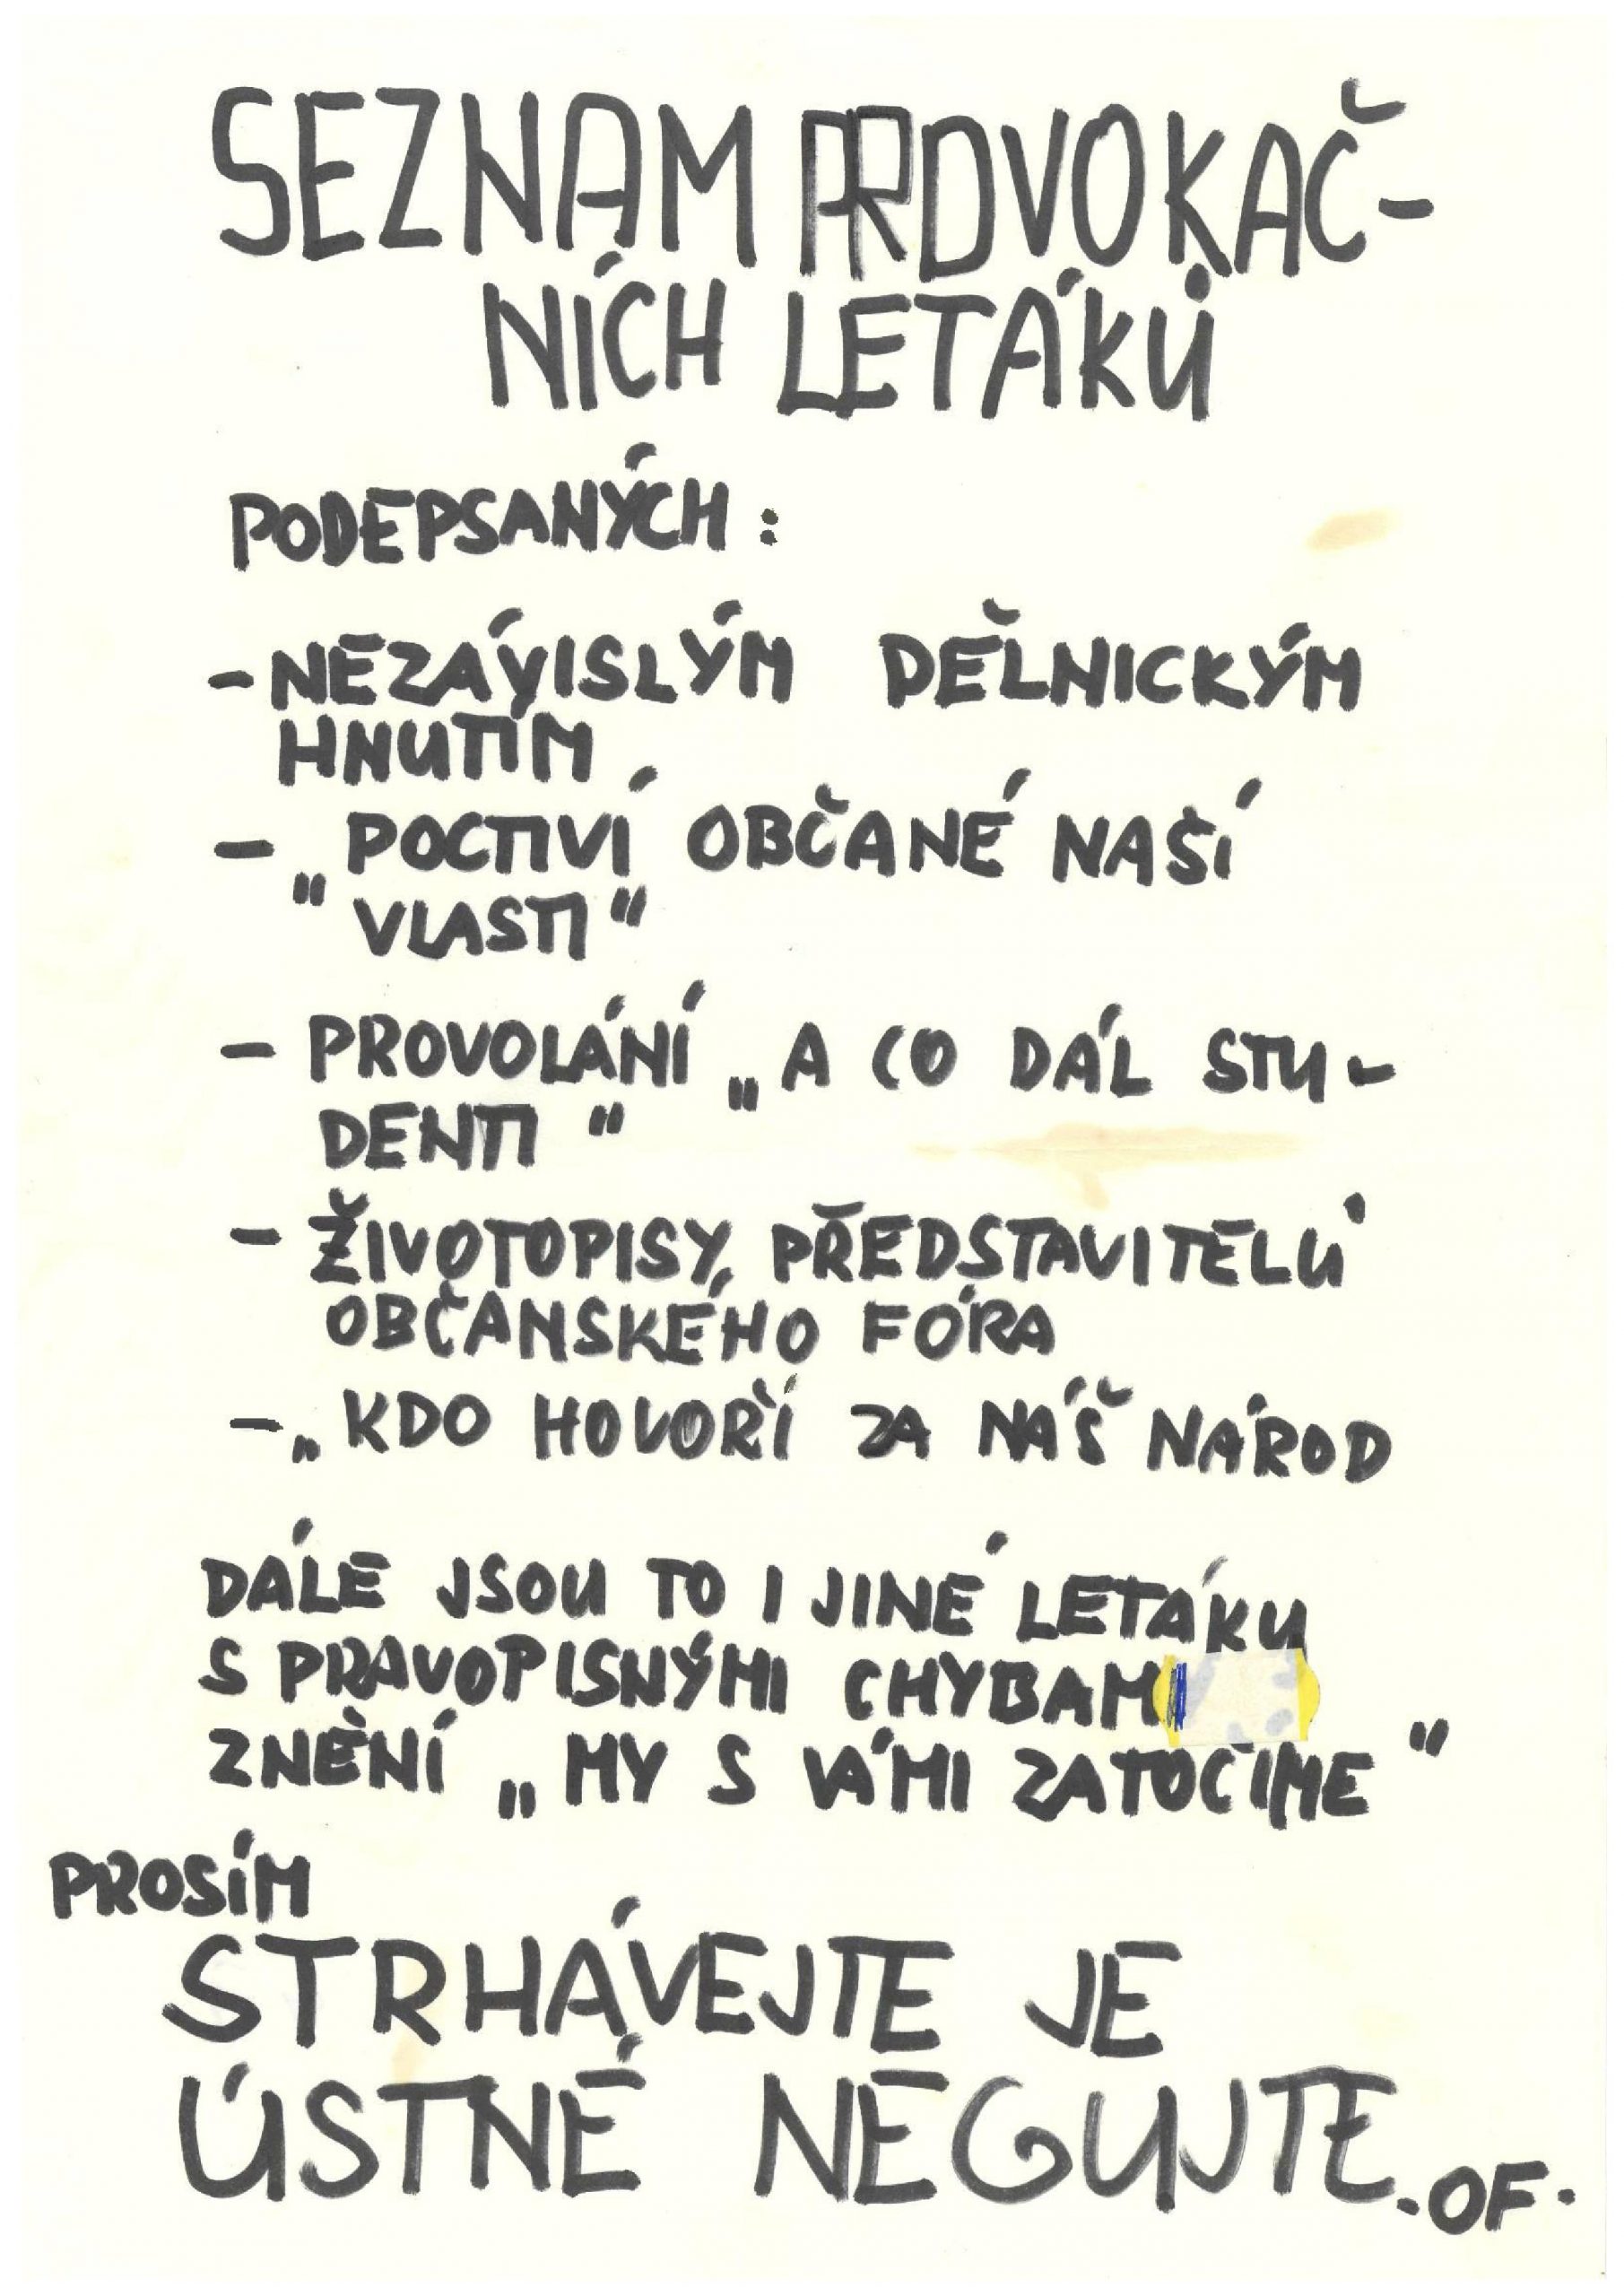 SEZNAM PROVOKAČ-
NÍCH LETÁKŮ
PODEPSANÝCH :
- NEZÁVISLÝM DĚLNICKÝM
HNUTÍM
- „POCTIVÍ OBČANÉ NAŠÍ
VLASTI“
- PROVOLÁNÍ „A CO DÁL STU-
DENTI“
- ŽIVOTOPISY PŘEDSTAVITELŮ
OBČANSKÉHO FÓRA
- „KDO HOVOŘÍ ZA NÁŠ NÁROD
DÁLE JSOU TO I JINÉ LETÁKU
S PRAVOPISNÝMI CHYBAMI
ZNĚNÍ „MY S VÁMI ZATOČÍME“
PROSÍM
STRHÁVEJTE JE
ÚSTNĚ NEGUJTE.
.OF.